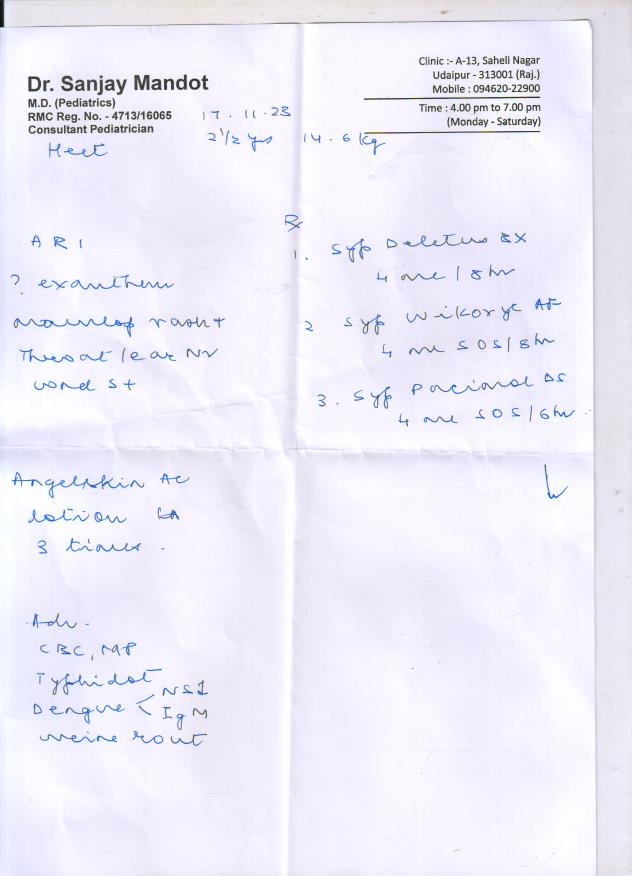 Dr. Sanjay Mandot
M.D. (Pediatrics)
RMC Reg. No. - 4713/16065
Consultant Pediatrician
Clinic :- A-13, Saheli Nagar
Udaipur - 313001 (Raj.)
Mobile : 094620-22900
Time : 4.00 pm to 7.00 pm
(Monday - Saturday)
17.11.23
Heet 2 1/2 yrs 14.6 kg
ARI
? exanthem
rash +
Throat / ear
S+
Rx
1. Syp Deletus
4 ml / 8 hr
2 Syp Wikoryl AF
4 ml SOS / 8 hr
3. Syp Pacimol DS
4 ml SOS / 6 hr
Angelskin AC
lotion LA
3 times
Adv -
CBC, MP
Typhidot
Dengue < NS1
IgM
Urine rout